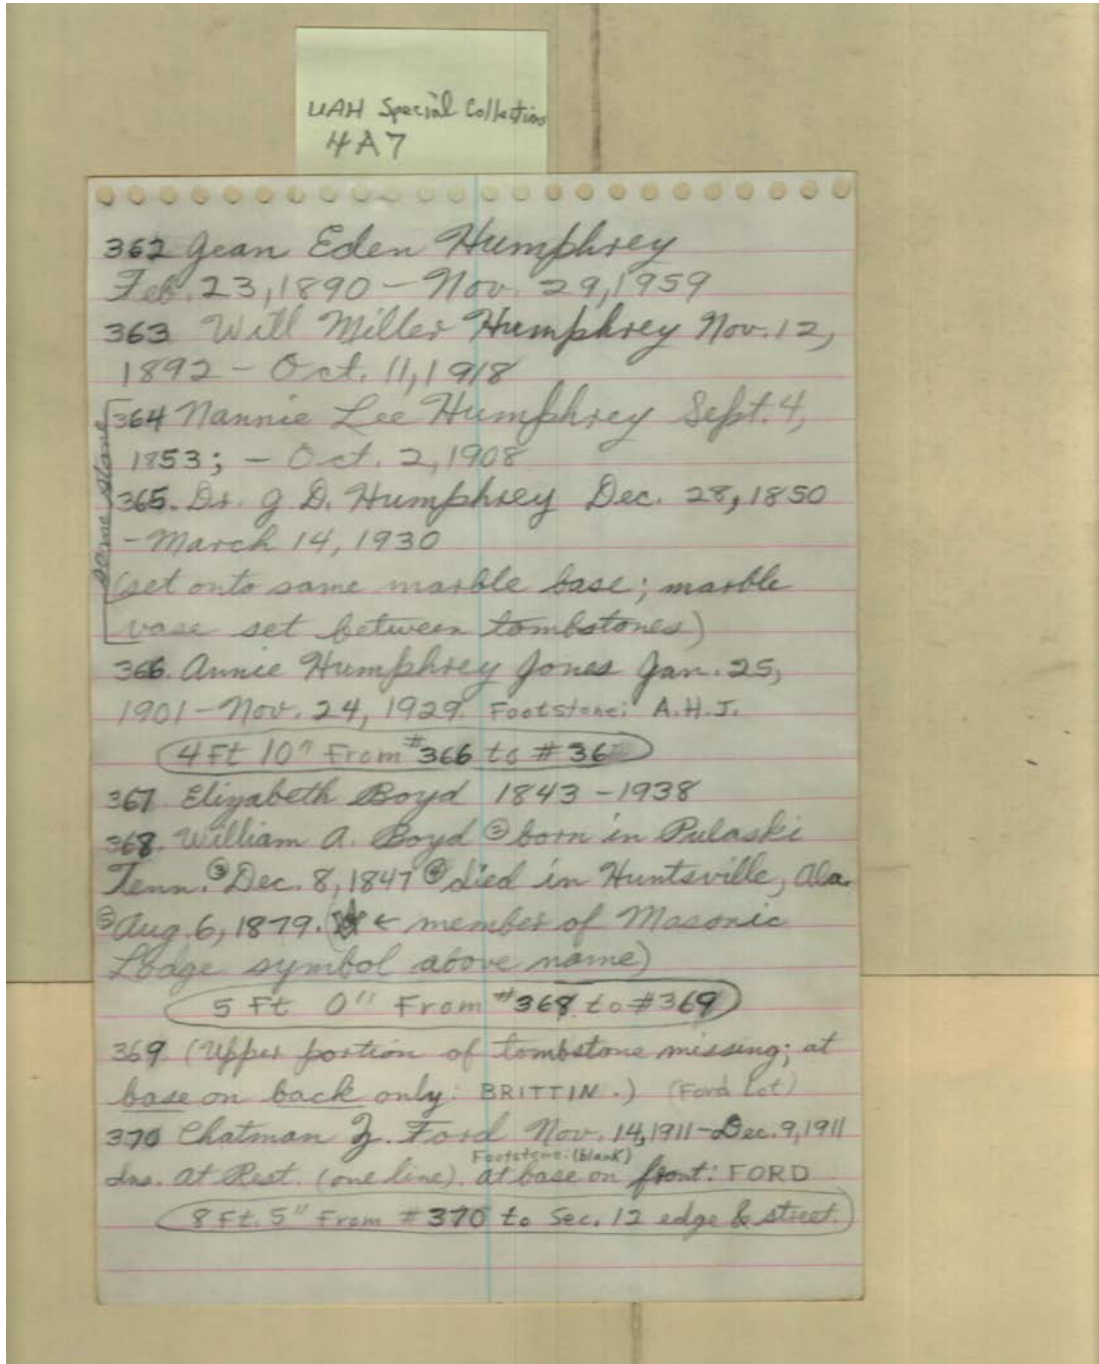 UAH Special Collections
4A7
362 Jean Eden Humphrey
Feb. 23, 1890 - Nov. 29, 1959
363 Will Miller Humphrey Nov. 12,
1892 - Oct. 11, 1918
same stone
364 Nannie Lee Humphrey Sept. 4,
1853; - Oct. 2, 1908
365. Dr. J D. Humphrey Dec. 28, 1850
- March 14, 1930
(set onto same marble base; marble
vase set between tombstones)
366. Annie Humphrey Jones Jan. 25,
1901 - Nov. 24, 1929. Footstone: A.H.J.
4 Ft 10" From #366 to #36
367 Elizabeth Boyd 1843 - 1938
368. William A. Boyd ② born in Pulaski
Tenn. ③ Dec. 8, 1847 ④ died in Huntsville, Ala.
⑤ Aug. 6, 1879. ← member of Masonic
Lodge symbol above name)
5 Ft 0" From #368 to #369
369 (Upper portion of tombstone missing; at
base on back only: BRITTIN.) (Ford Lot)
370 Chatman Z. Ford Nov. 14, 1911 - Dec. 9, 1911
Footstone: (blank)
Ins. At Rest. (one line). At base on front: FORD
8 Ft. 5" From #370 to Sec. 12 edge & street.